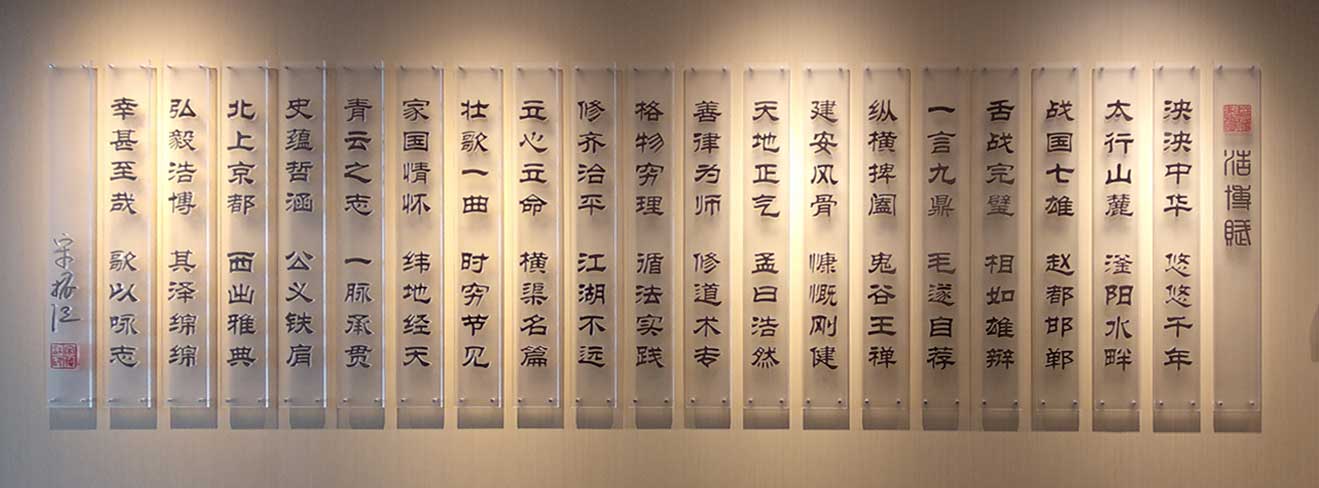 浩博赋
泱泱中华 悠悠千年
太行山麓 滏阳水畔
战国七雄 赵都邯郸
舌战完璧 相如雄辩
一言九鼎 毛遂自荐
纵横捭阖 鬼谷王禅
建安风骨 慷慨刚健
天地正气 孟曰浩然
善律为师 修道术专
格物穷理 循法实践
修齐治平 江湖不远
立心立命 横渠名篇
壮歌一曲 时穷节见
家国情怀 纬地经天
青云之志 一脉承贯
史蕴哲涵 公义铁肩
北上京都 西出雅典
弘毅浩博 其泽绵绵
幸甚至哉 歌以咏志